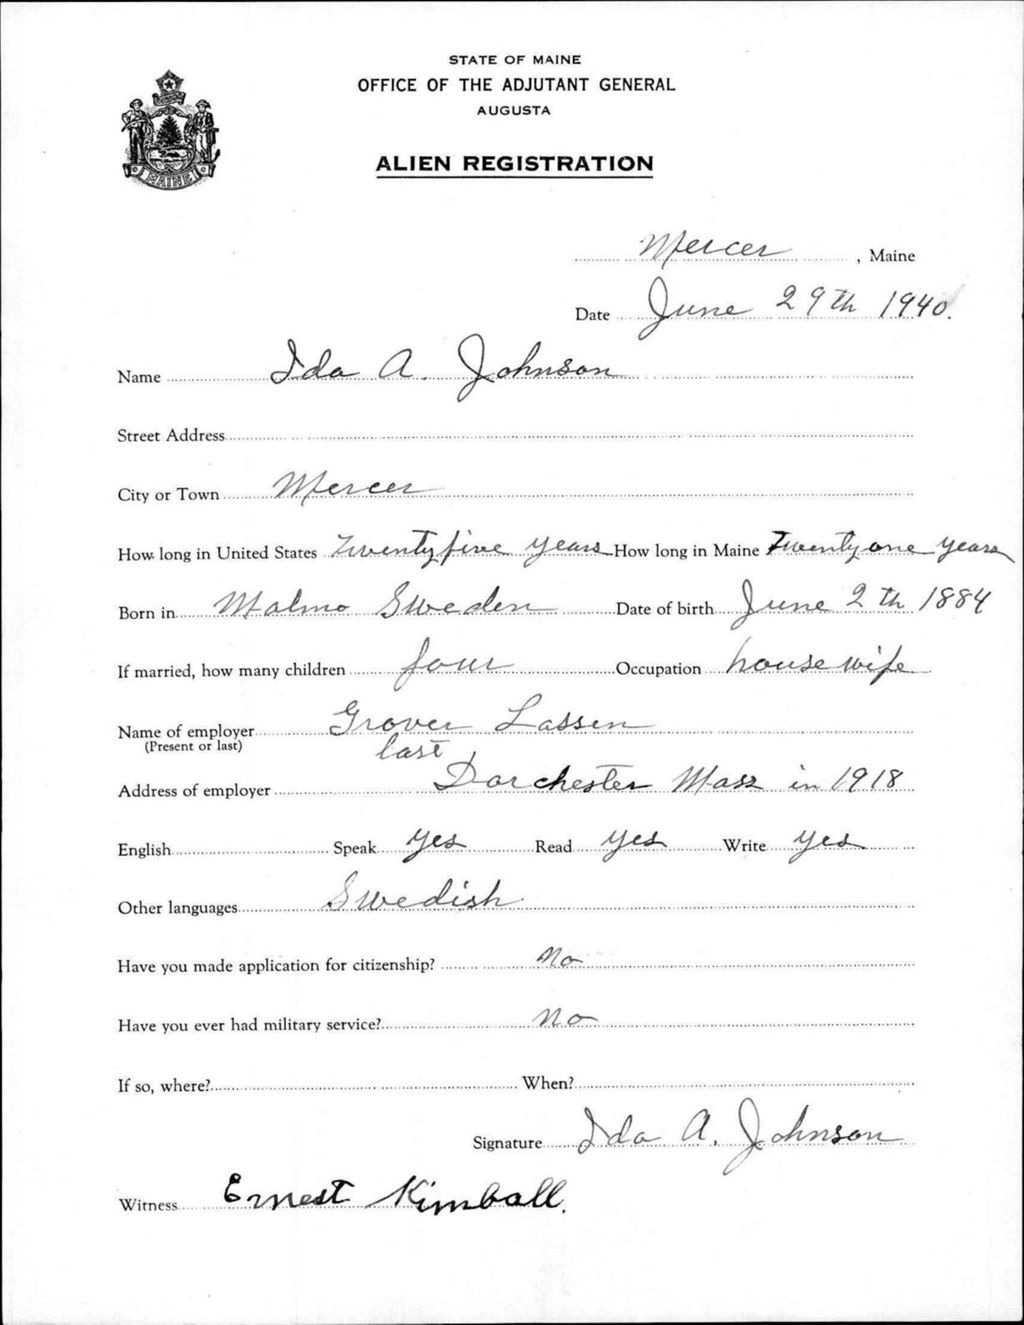 STATE OF MAINE
OFFICE OF THE ADJUTANT GENERAL
AUGUSTA
ALIEN REGISTRATION
MAINE
Mercer, Maine
Date June 29th 1940.
Name Ida A. Johnson
Street Address
City or Town Mercer
How long in United States Twenty five years How long in Maine Twenty one years
Born in Malmo Sweden Date of birth June 2th 1884
If married, how many children four Occupation housewife
Name of employer Grover Lassen
(Present or last) last
Address of employer Dorchester Mass in 1918
English Speak yes Read yes Write yes
Other languages Swedish
Have you made application for citizenship? No
Have you ever had military service? No
If so, where? When?
Signature Ida A. Johnson
Witness Ernest Kimball.